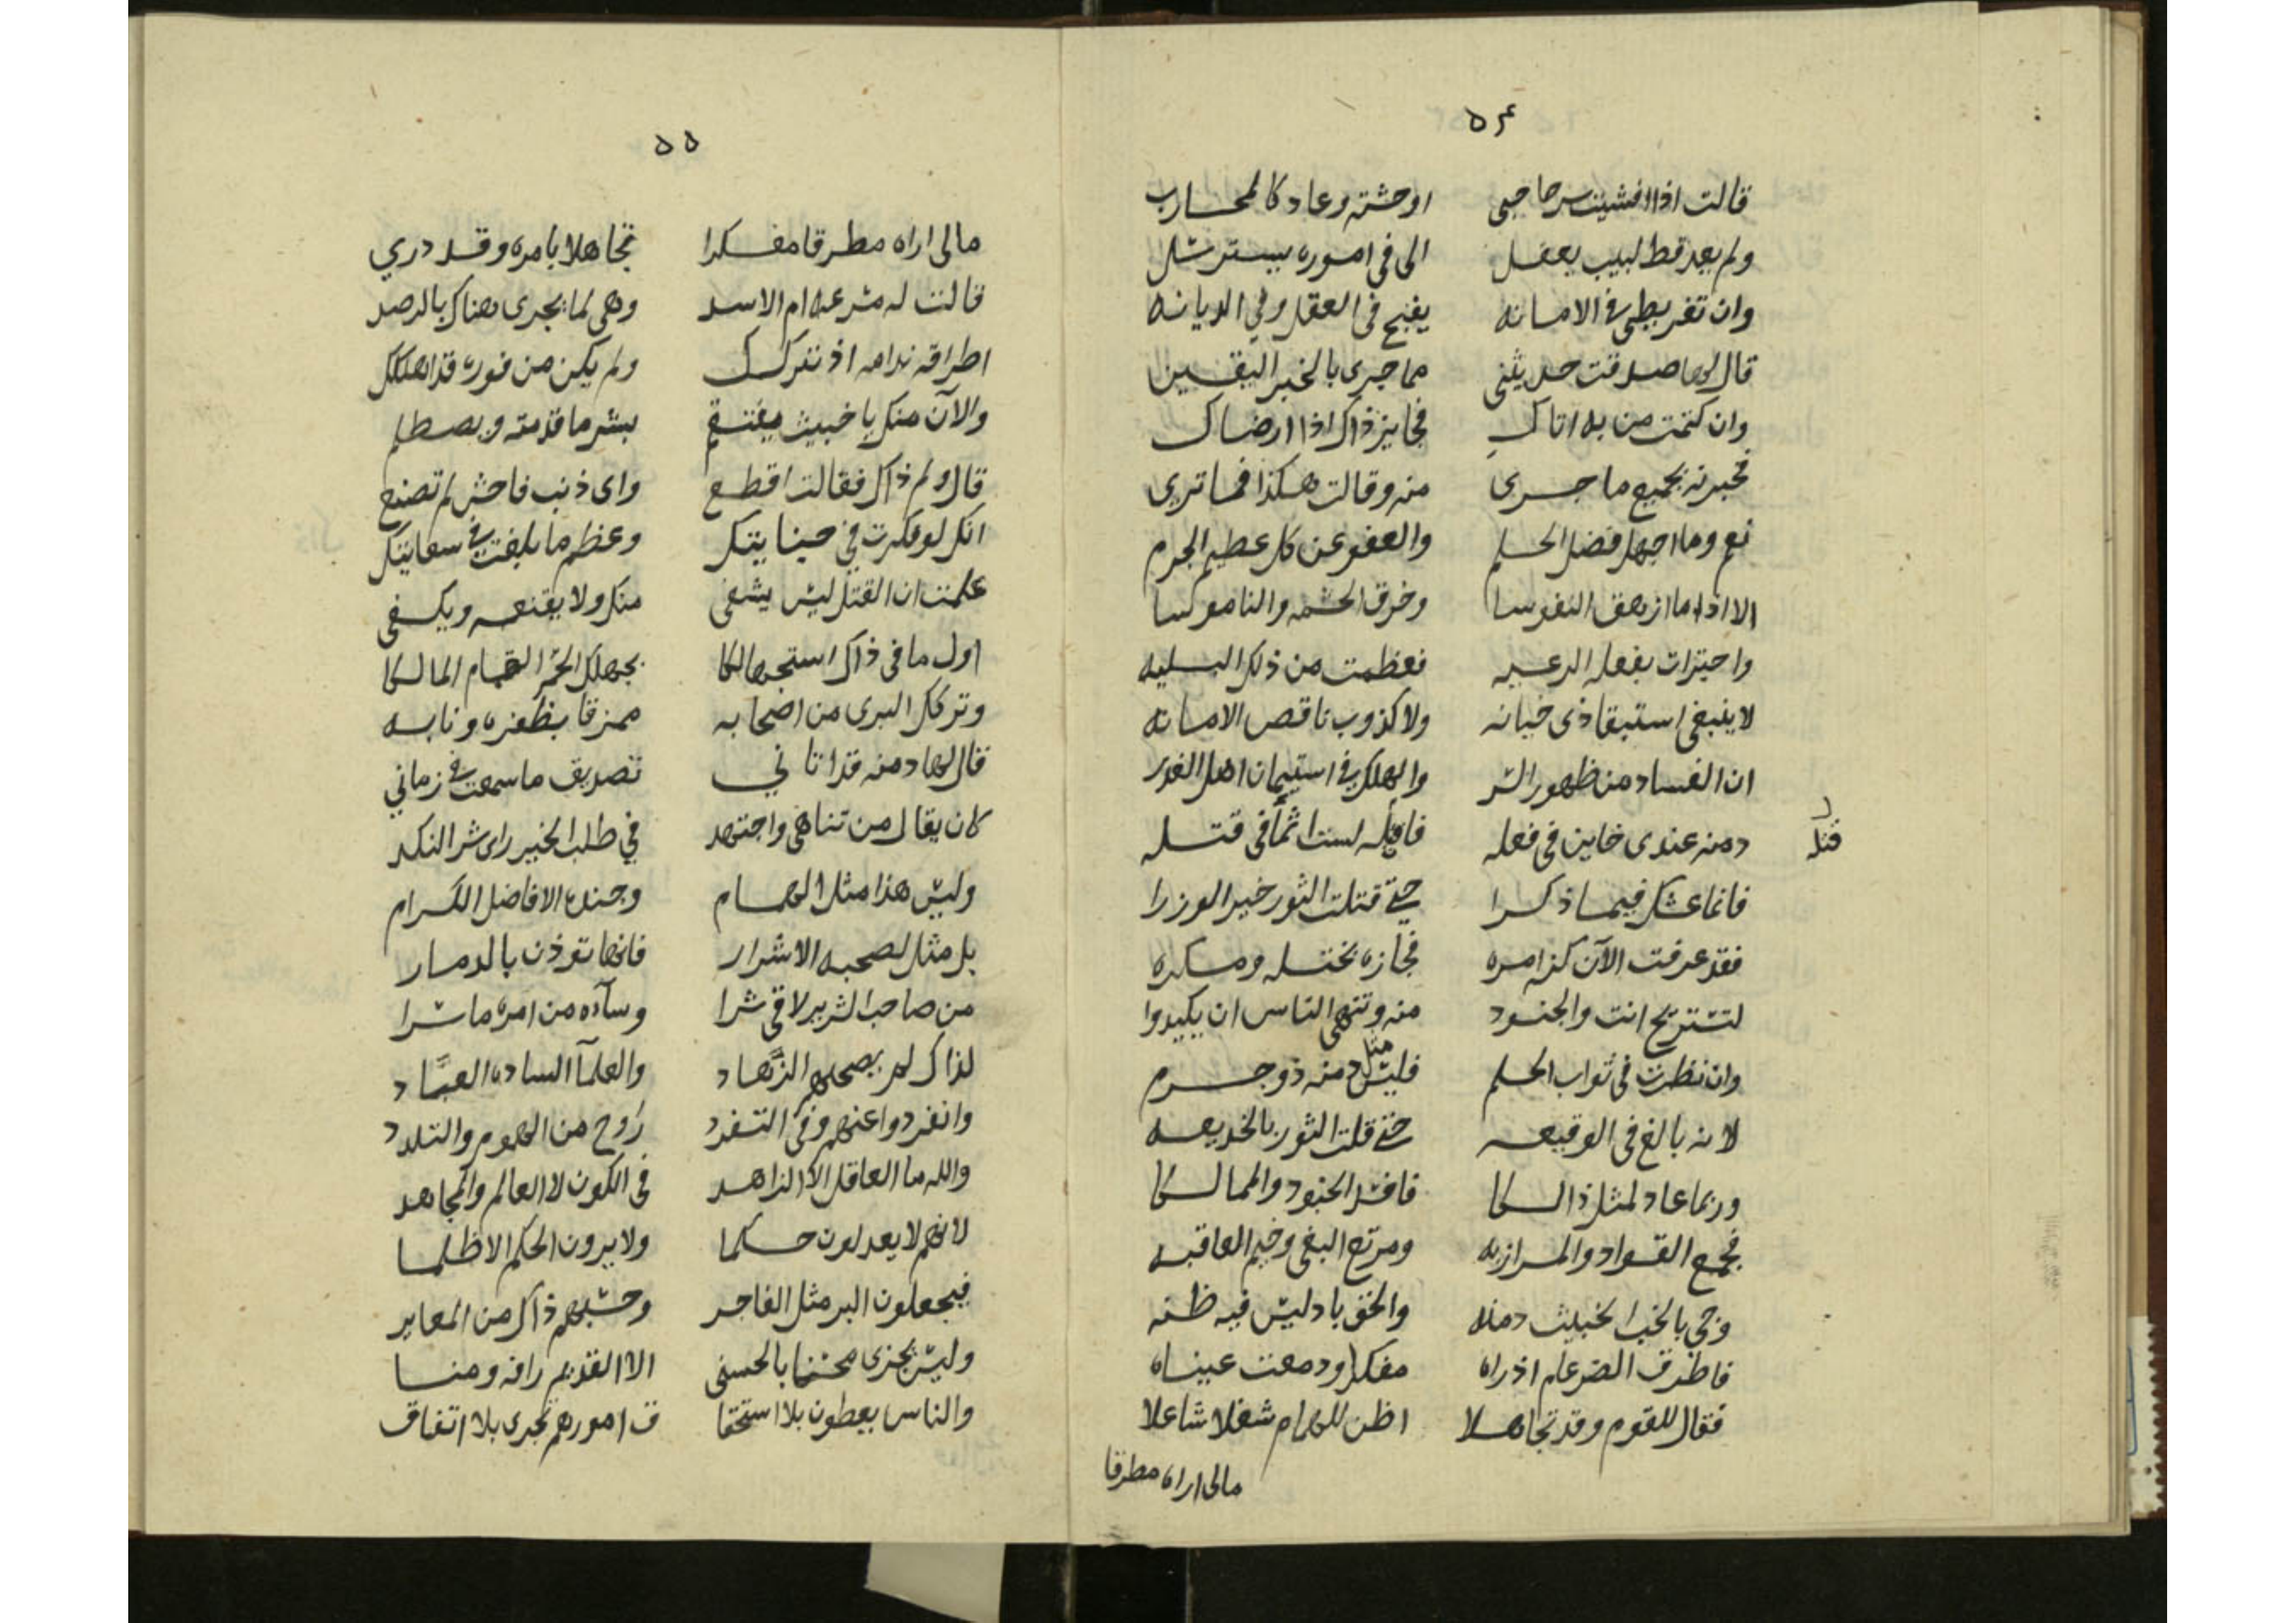 ٥٤
قالت اذا افشيت سر صاحبي اوحشته وعاد كالمحارب
ولم يعد قط لبيب يعقل الى في اموره يسترسل
وان تفريطى في الامانه يقبح فى العقل وفي الديانه
قال لها صدقت حدثينى مما جرى بالخبر اليقين
وان كتمت من به اتاكِ فجايز ذاك اذا ارضاك
فخبرته بجميع ما جرى منه وقالت هكذا فما ترى
نعم وما اجهل فضل الحلم والعفو عن كل عظيم الجرم
الا اذا ما ازهق النفوسا وخرق الحشمه والناموسا
واجترات بفعله الرعيه فعظمت من ذلك البليه
لا ينبغى استبقا ذى خيانه ولا كذوب ناقص الامانه
ان الفساد من ظهور الشر والهلك في استيمان اهل الغدر
دمنه عندى خاين فى فعله فاقتله لست اثماً فى قتله
قتله
فانما غشك فيما ذكرا حتى قتلت الثور خير الوزرا
فقد عرفت الآن كنه امره فجازه بختله ومكره
لتستريح انت والجنود منه وتنهى الناس ان يكيدوا
وان نظرت فى ثواب الحلم فليس مثل دمنه ذو جرم
لانه بالغ فى الوقيعه حتى قتلت الثور بالخديعه
وربما عاد لمثل ذالكا فافسد الجنود والممالكا
فجمع القواد والمرازبه ومرتع البغى وخيم العاقبه
وجى بالخب الخبيث دمنه والحق باد ليس فيه ظنه
فاطرق الضرغام اذ راه مفكرا ودمعت عيناه
فقال للقوم وقد تجاهلا اظن للهمام شغلا شاغلا
مالى اراه مطرقا
٥٥
مالى اراه مطرقا مفكرا تجاهلا بامره وقد درى
قالت له مسرعه ام الاسد وهى لما يجرى هناك بالرصد
اطراقه ندامه اذ تتركك ولم يكن من فوره قد اهلكك
والآن منك يا خبيث ينتقم بشر ما قدمته ويصطلم
قال ولم ذاك فقالت اقطع واى ذنب فاحش لم تصنع
انك لو فكرت في جنايتك وعظم ما بلغت في سعايتك
علمت ان القتل ليس يشفى منك ولا يقنعه ويكفى
اول ما فى ذاك استجهالكا بجهلك الحر الهمام المالكا
وتركك البرى من اصحابه ممزقا بظفره ونابه
قال لها دمنه قد اتاني تصديق ما سمعت في زماني
كان يقال من تناهى واجتهد في طلب الخير راى شر النكد
وليس هذا مثل الهمام وجنده الافاضل الكرام
بل مثل لصحبه الاشرار فانها توذن بالدمار
من صاحب الشرير لاقى شرا وسآه من امره ما سرا
لذاك لم يصحبهم الزهاد والعلمآ الساده العبّاد
وانفردوا عنهم وفى التفرد رَوح من الهموم والتلدد
والله ما العاقل الا الزاهد فى الكون لا العالم والمجاهد
لانهم لا يعدلون حكما ولا يرون الحكم الا ظلما
فيجعلون البر مثل الفاجر وحسبهم ذاك من المعاير
وليس يجزى محسنا بالحسنى الا القديم رافه ومنا
والناس يعطون بلا استحقا ق امورهم تجرى بلا اتفاق